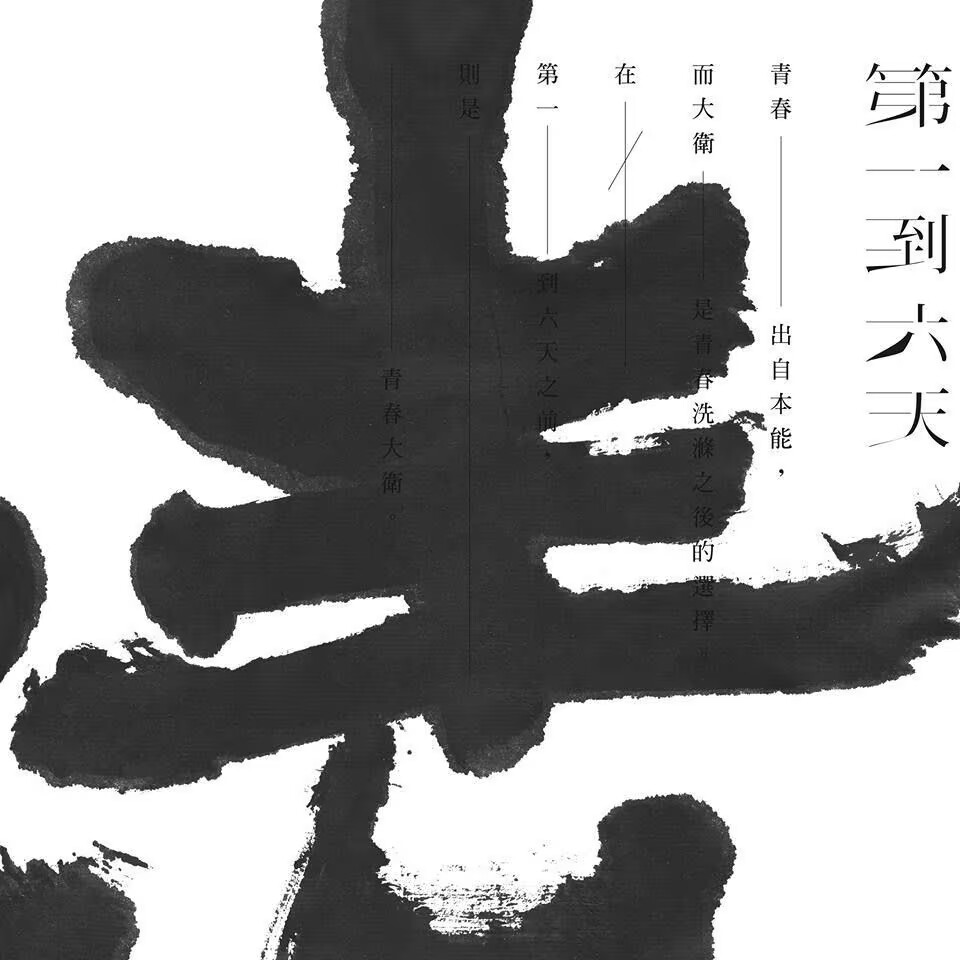 第一到六天
青春出自本能，
而大衛是青春洗滌之後的選擇。
在
第一到六天之前，
則是
青春大衛。